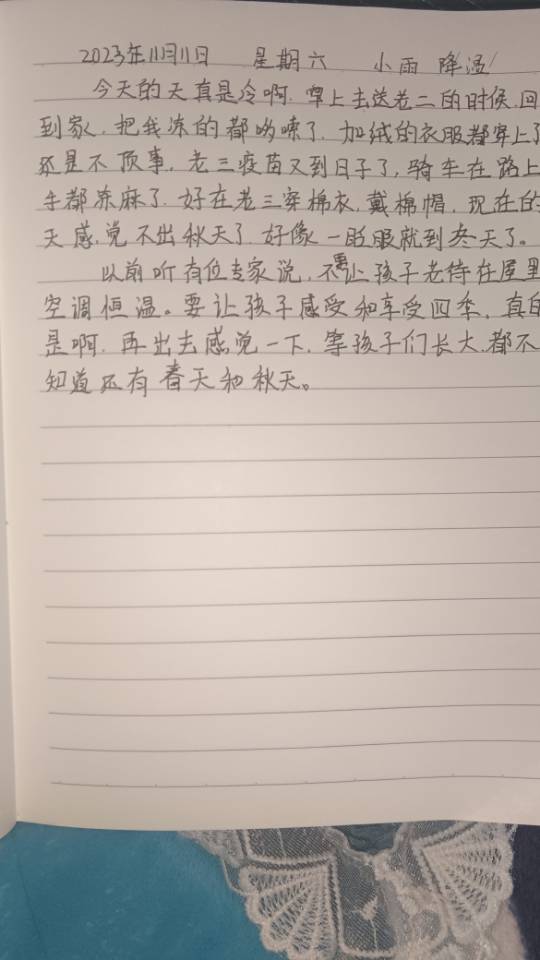 2023年11月11日 星期六 小雨 降温
今天的天真是冷啊，早上去送老二的时候，回
到家，把我冻的都哆嗦了，加绒的衣服都穿上了
还是不顶事，老三疫苗又到日子了，骑车在路上
手都冻麻了，好在老三穿棉衣，戴棉帽，现在的
天感觉不出秋天了，好像一眨眼就到冬天了。
以前听有位专家说，不要让孩子老待在屋里
空调恒温。要让孩子感受和享受四季，真的
是啊，再出去感觉一下，等孩子们长大，都不
知道还有春天和秋天。